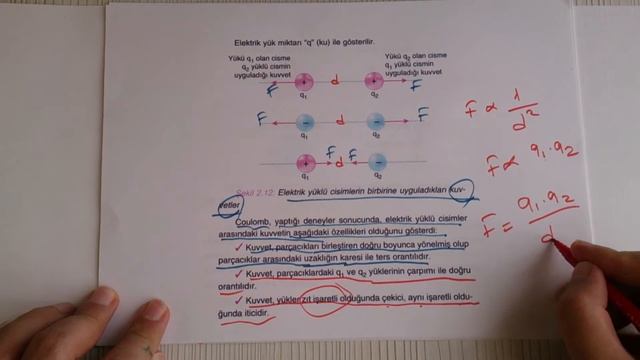 Elektrik yük miktarı "q" (ku) ile gösterilir.
Yükü q₁ olan cisme
q₂ yüklü cismin
uyguladığı kuvvet
Yükü q₂ olan cisme
q₁ yüklü cismin
uyguladığı kuvvet
F + d + F
q₁ q₂
F − d − F
q₁ q₂
+ F d F −
q₁ q₂
Şekil 2.12: Elektrik yüklü cisimlerin birbirine uyguladıkları kuv-
vetler
Coulomb, yaptığı deneyler sonucunda, elektrik yüklü cisimler
arasındaki kuvvetin aşağıdaki özellikleri olduğunu gösterdi:
✓ Kuvvet, parçacıkları birleştiren doğru boyunca yönelmiş olup
parçacıklar arasındaki uzaklığın karesi ile ters orantılıdır.
✓ Kuvvet, parçacıklardaki q₁ ve q₂ yüklerinin çarpımı ile doğru
orantılıdır.
✓ Kuvvet, yükler zıt işaretli olduğunda çekici, aynı işaretli oldu-
ğunda iticidir.
F ∝ 1/d²
F ∝ q₁.q₂
F = q₁.q₂/d